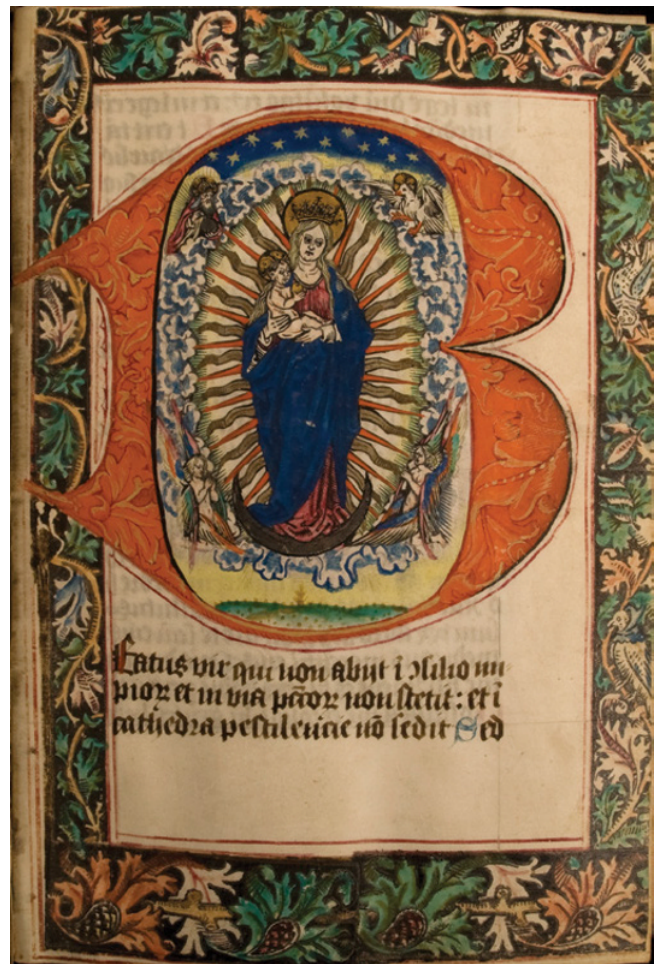 B
Eatus vir qui non abijt ī ꝯsilio im-
pioꝝ et in via pctoꝝ non stetit: et ī
cathedra pestilencie nō sedit Sed